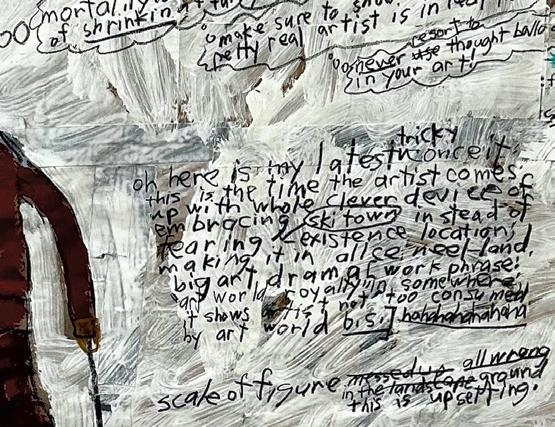 mortality
of shrinkin
make sure to show
artist is in real
petty real
resort to
never use thought ballo
in your art!
tricky
oh here is my latest conceit:
this is the time the artist comes
up with whole clever device of
embracing ski town in stead of
fearing existence location,
making it in alice neel land.
big art drama at work phrase:
art world royalty in somewhere
it shows artist not too consumed
by art world b.s.! hahahahahahaha
scale of figure messed up all wrong
in the landscape ground
this is upsetting.